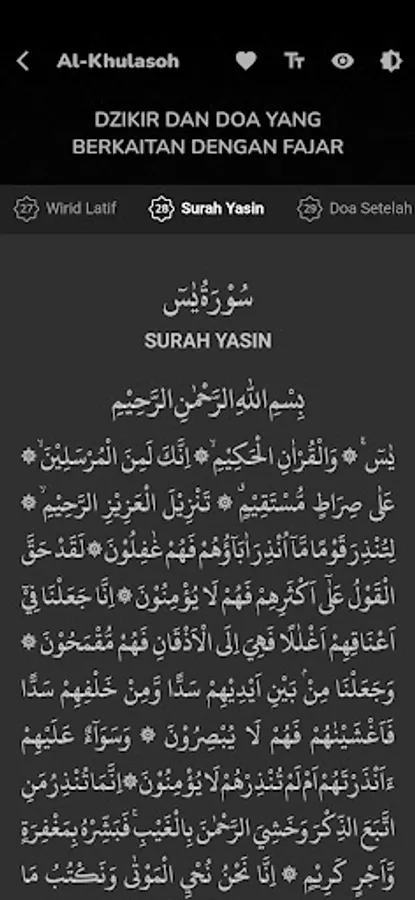 Al-Khulasoh
DZIKIR DAN DOA YANG
BERKAITAN DENGAN FAJAR
27 Wirid Latif 28 Surah Yasin 29 Doa Setelah
سُوْرَةُ يٰسٓ
SURAH YASIN
بِسْمِ اللهِ الرَّحْمٰنِ الرَّحِيْمِ
يٰسٓ ۚ ۞ وَالْقُرْاٰنِ الْحَكِيْمِۙ ۞ اِنَّكَ لَمِنَ الْمُرْسَلِيْنَۙ ۞
عَلٰى صِرَاطٍ مُّسْتَقِيْمٍۗ ۞ تَنْزِيْلَ الْعَزِيْزِ الرَّحِيْمِۙ ۞
لِتُنْذِرَ قَوْمًا مَّآ اُنْذِرَ اٰبَاۤؤُهُمْ فَهُمْ غٰفِلُوْنَ ۞ لَقَدْ حَقَّ
الْقَوْلُ عَلٰٓى اَكْثَرِهِمْ فَهُمْ لَا يُؤْمِنُوْنَ ۞ اِنَّا جَعَلْنَا فِيْٓ
اَعْنَاقِهِمْ اَغْلٰلًا فَهِيَ اِلَى الْاَذْقَانِ فَهُمْ مُّقْمَحُوْنَ ۞
وَجَعَلْنَا مِنْۢ بَيْنِ اَيْدِيْهِمْ سَدًّا وَّمِنْ خَلْفِهِمْ سَدًّا
فَاَغْشَيْنٰهُمْ فَهُمْ لَا يُبْصِرُوْنَ ۞ وَسَوَاۤءٌ عَلَيْهِمْ
ءَاَنْذَرْتَهُمْ اَمْ لَمْ تُنْذِرْهُمْ لَا يُؤْمِنُوْنَ ۞ اِنَّمَا تُنْذِرُ مَنِ
اتَّبَعَ الذِّكْرَ وَخَشِيَ الرَّحْمٰنَ بِالْغَيْبِۚ فَبَشِّرْهُ بِمَغْفِرَةٍ
وَّاَجْرٍ كَرِيْمٍ ۞ اِنَّا نَحْنُ نُحْيِ الْمَوْتٰى وَنَكْتُبُ مَا